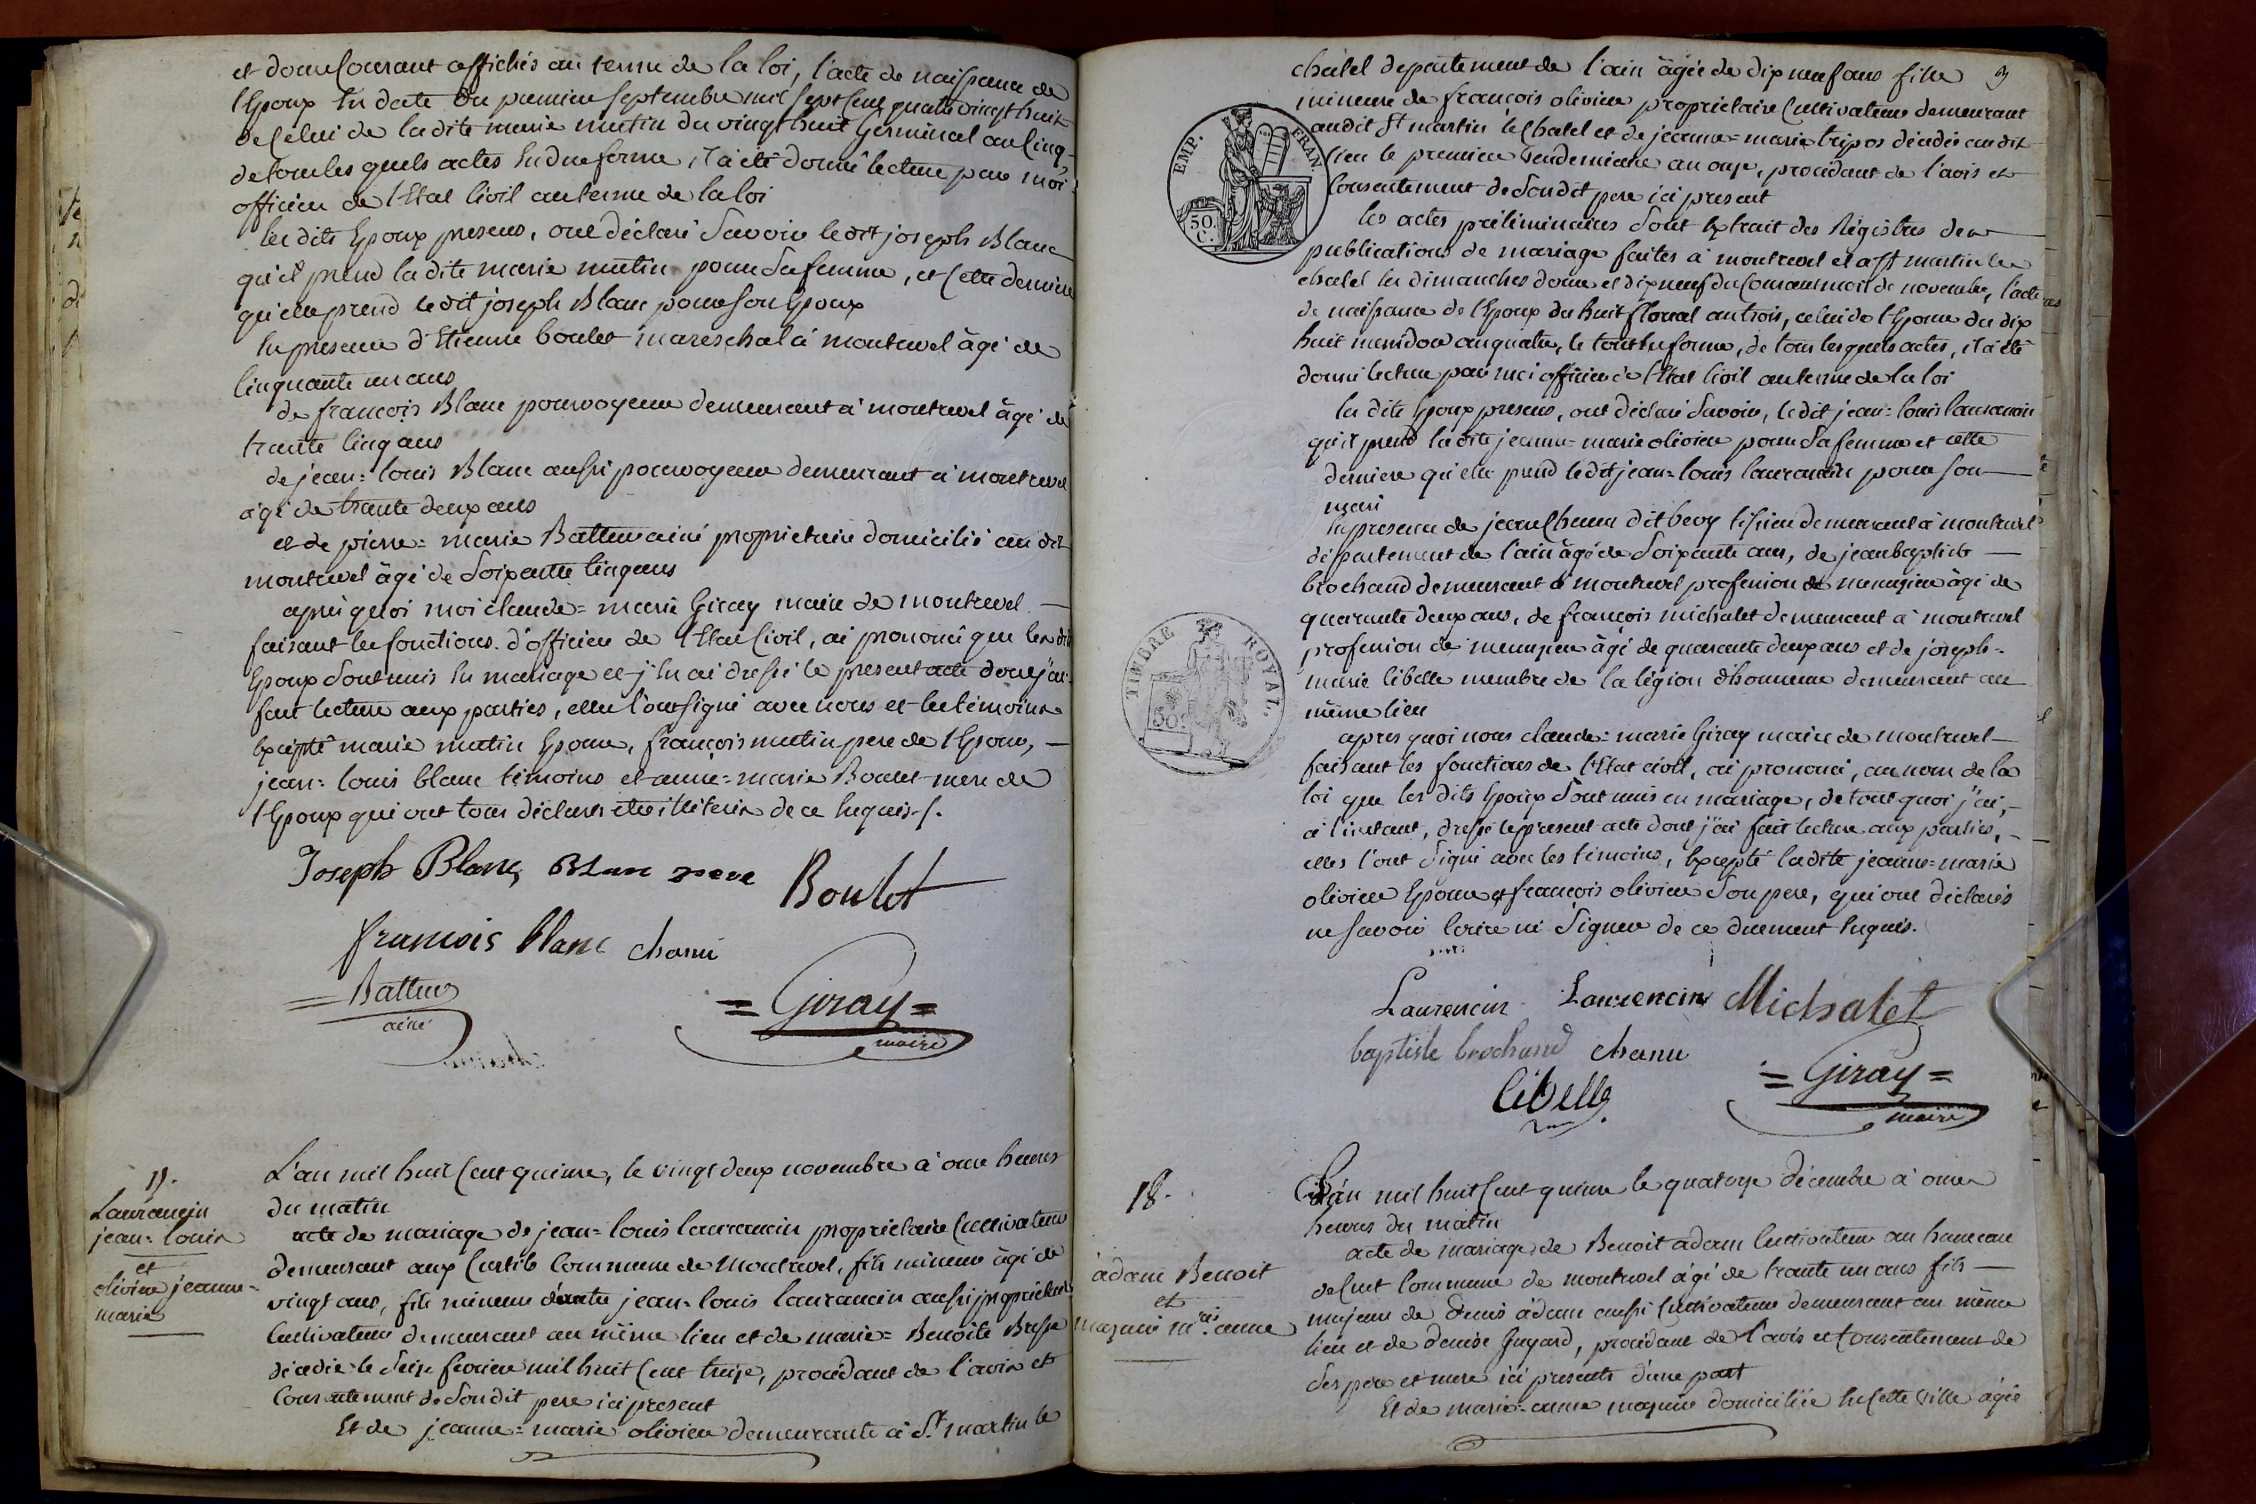 et douze Courant affichés au terme de la loi, l'acte de naissance de
l'Epoux En date du premier Septembre mil Sept Cent quatre vingt huit
de Celui de ladite marie mutin du vingt huit Germinal an Cinq
de tous les quels actes En due forme, il a été donné lecture par moi
officier de l'Etat Civil au terme de la loi
les dits Epoux presens, ont déclaré Savoir le dit joseph Blanc
qu'il prend la dite marie mutin pour Sa femme, et Cette derniere
qu'elle prend le dit joseph Blanc pour Son Epoux
En presence d'Etienne boulet mareschal à montrevel âgé de
Cinquante un ans
de françois Blanc pourvoyeur demeurant à montrevel âgé de
trante Cinq ans
de jean=louis Blanc aussi pourvoyeur demeurant à montrevel
âgé de trante deux ans
et de pierre=marie Battur ainé propriétaire domicilié au dit
montrevel âgé de Soixante Cinq ans
après quoi moi claude=marie Giray maire de montrevel
faisant les fonctions d'officier de l'Etat Civil, ai prononcé que les dit
Epoux Sont unis En mariage et j'En ai dressé le présent acte dont j'ai
fait lecture aux parties, elles l'ont Signé avec nous et les témoins
Excepté marie mutin Epouse, françois mutin pere de l'Epouse,
jean=louis blanc témoins et anne=marie Boulet mere de
l'Epoux qui ont tous déclarés être illiteris de ce Enquis./.
Joseph Blanc, BLanc pere Boulet
francois blanc chanu
Battur
ainé
=Giray=
maire
19.
Laurancin
jean=louis
et
olivier jeanne=
marie
L'an mil huit Cent quinze, le vingt deux novembre à onze heures
du matin
acte de mariage de jean=louis laurancin propriétaire Cultivateur
demeurant aux Curtils Commune de Montrevel, fils mineur âgé de
vingt ans, fils mineur d'autre jean=louis laurancin aussi propriétaire
Cultivateur demeurant au même lieu et de marie=Benoite Bresse
décédée le Seize fevrier mil huit Cent treize, procédant de l'avis et
Consentement de Son dit pere ici present
Et de jeanne=marie olivier demeurante à St. martin le
9
châtel departement de l'ain âgée de dix neuf ans fille
mineure de françois olivier propriétaire Cultivateur demeurant
audit St martin le Chatel et de jeanne=marie tripoz décédée audit
lieu le premier vendemiaire an onze, procédant de l'avis et
Consentement de Son dit pere ici present
EMP. FRAN.
50.
C.
les actes préliminaires Sont Extrait des Régistres des
publications de mariage faites à montrevel et a St martin le
chatel les dimanches douze et dix neuf du Courant mois de novembre, l'acte
de naissance de l'Epoux du huit floreal an trois, celui de l'Epouse du dix
huit messidor an quatre, le tout En forme, de tous lesquels actes, il a été
donné lecture par moi officier de l'Etat Civil au terme de la loi
les dits Epoux presens, ont déclaré Savoir, le dit jean=louis laurancin
qu'il prend la dite jeanne=marie olivier pour Sa femme et cette
derniere qu'elle prend le dit jean=louis laurancin pour Son
mari
En presence de jean Chanu dit bevy tissier demeurant à montrevel
département de l'ain âgé de Soixante ans, de jean baptiste
brochand demeurant à montrevel profession de menuzier âgé de
quarante deux ans, de françois michalet demeurant à montrevel
profession de menuzier âgé de quarante deux ans et de joseph=
marie libelle membre de la légion d'honneur demeurant au
même lieu
TIMBRE ROYAL.
50.
apres quoi nous claude=marie Giray maire de montrevel
faisant les fonctions de l'Etat civil, ai prononcé, au nom de la
loi que les dits Epoux Sont unis en mariage, de tout quoi j'ai,
à l'instant, dressé le present acte dont j'ai fait lecture aux parties,
elles l'ont Signé avec les témoins, Excepté ladite jeanne=marie
olivier Epouse et françois olivier Son pere, qui ont déclarés
ne Savoir Ecrire ni Signer de ce duement Enquis.
Laurencin Laurencin Michalet
baptiste brochand chanu
Libelle
=Giray=
maire
18.
adam Benoit
et
maznin mrie. anne
L'an mil huit Cent quinze le quatorze décembre à onze
heures du matin
acte de mariage de Benoit adam Cultivateur au hameau
de Cuet Commune de montrevel âgé de trante un ans fils
majeur de Denis adam aussi Cultivateur demeurant au même
lieu et de denise Guyard, procédant de l'avis et Consentement de
Ses pere et mere ici presents d'une part
Et de marie=anne maznin domiciliée En Cette Ville âgée